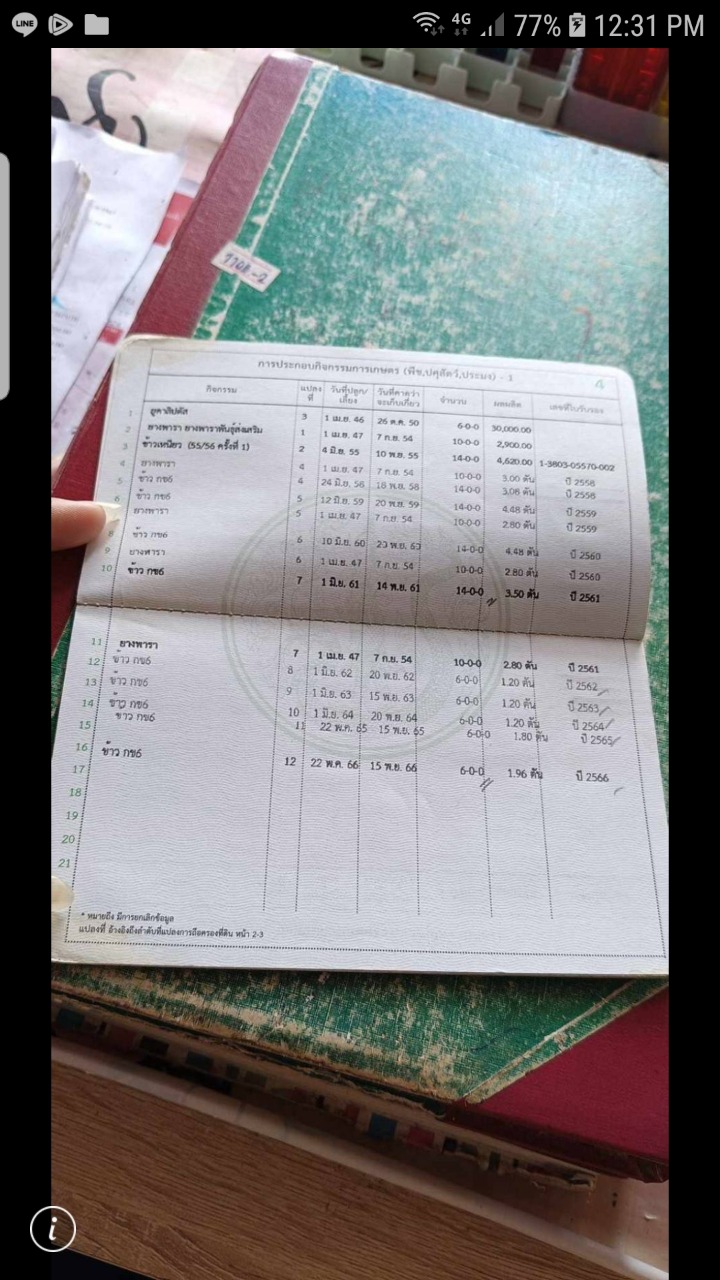 LINE 4G 77% 12:31 PM
770B-2
4
การประกอบกิจกรรมการเกษตร (พืช,ปศุสัตว์,ประมง) - 1
กิจกรรม แปลงที่ วันที่ปลูก/เลี้ยง วันที่คาดว่าจะเก็บเกี่ยว จำนวน ผลผลิต เลขที่ใบรับรอง
1 ยูคาลิปตัส 3 1 เม.ย. 46 26 ต.ค. 50 6-0-0 30,000.00
2 ยางพารา ยางพาราพันธุ์ส่งเสริม 1 1 เม.ย. 47 7 ก.ย. 54 10-0-0 2,900.00
3 ข้าวเหนียว (55/56 ครั้งที่ 1) 2 4 มิ.ย. 55 10 พ.ย. 55 14-0-0 4,620.00 1-3803-05570-002
4 ยางพารา 4 1 เม.ย. 47 7 ก.ย. 54 10-0-0 3.00 ตัน ปี 2558
5 ข้าว กข6 4 24 มิ.ย. 58 18 พ.ย. 58 14-0-0 3.08 ตัน ปี 2558
6 ข้าว กข6 5 12 มิ.ย. 59 20 พ.ย. 59 14-0-0 4.48 ตัน ปี 2559
ยางพารา 5 1 เม.ย. 47 7 ก.ย. 54 10-0-0 2.80 ตัน ปี 2559
8 ข้าว กข6 6 10 มิ.ย. 60 23 พ.ย. 60 14-0-0 4.48 ตัน ปี 2560
9 ยางพารา 6 1 เม.ย. 47 7 ก.ย. 54 10-0-0 2.80 ตัน ปี 2560
10 ข้าว กข6 7 1 มิ.ย. 61 14 พ.ย. 61 14-0-0 3.50 ตัน ปี 2561
11 ยางพารา 7 1 เม.ย. 47 7 ก.ย. 54 10-0-0 2.80 ตัน ปี 2561
12 ข้าว กข6 8 1 มิ.ย. 62 20 พ.ย. 62 6-0-0 1.20 ตัน ปี 2562
13 ข้าว กข6 9 1 มิ.ย. 63 15 พ.ย. 63 6-0-0 1.20 ตัน ปี 2563
14 ข้าว กข6 10 1 มิ.ย. 64 20 พ.ย. 64 6-0-0 1.20 ตัน ปี 2564
15 ข้าว กข6 11 22 พ.ค. 65 15 พ.ย. 65 6-0-0 1.80 ตัน ปี 2565
16 ข้าว กข6 12 22 พ.ค. 66 15 พ.ย. 66 6-0-0 1.96 ตัน ปี 2566
17
18
19
20
21
* หมายถึง มีการยกเลิกข้อมูล
แปลงที่ อ้างอิงถึงลำดับที่แปลงการถือครองที่ดิน หน้า 2-3